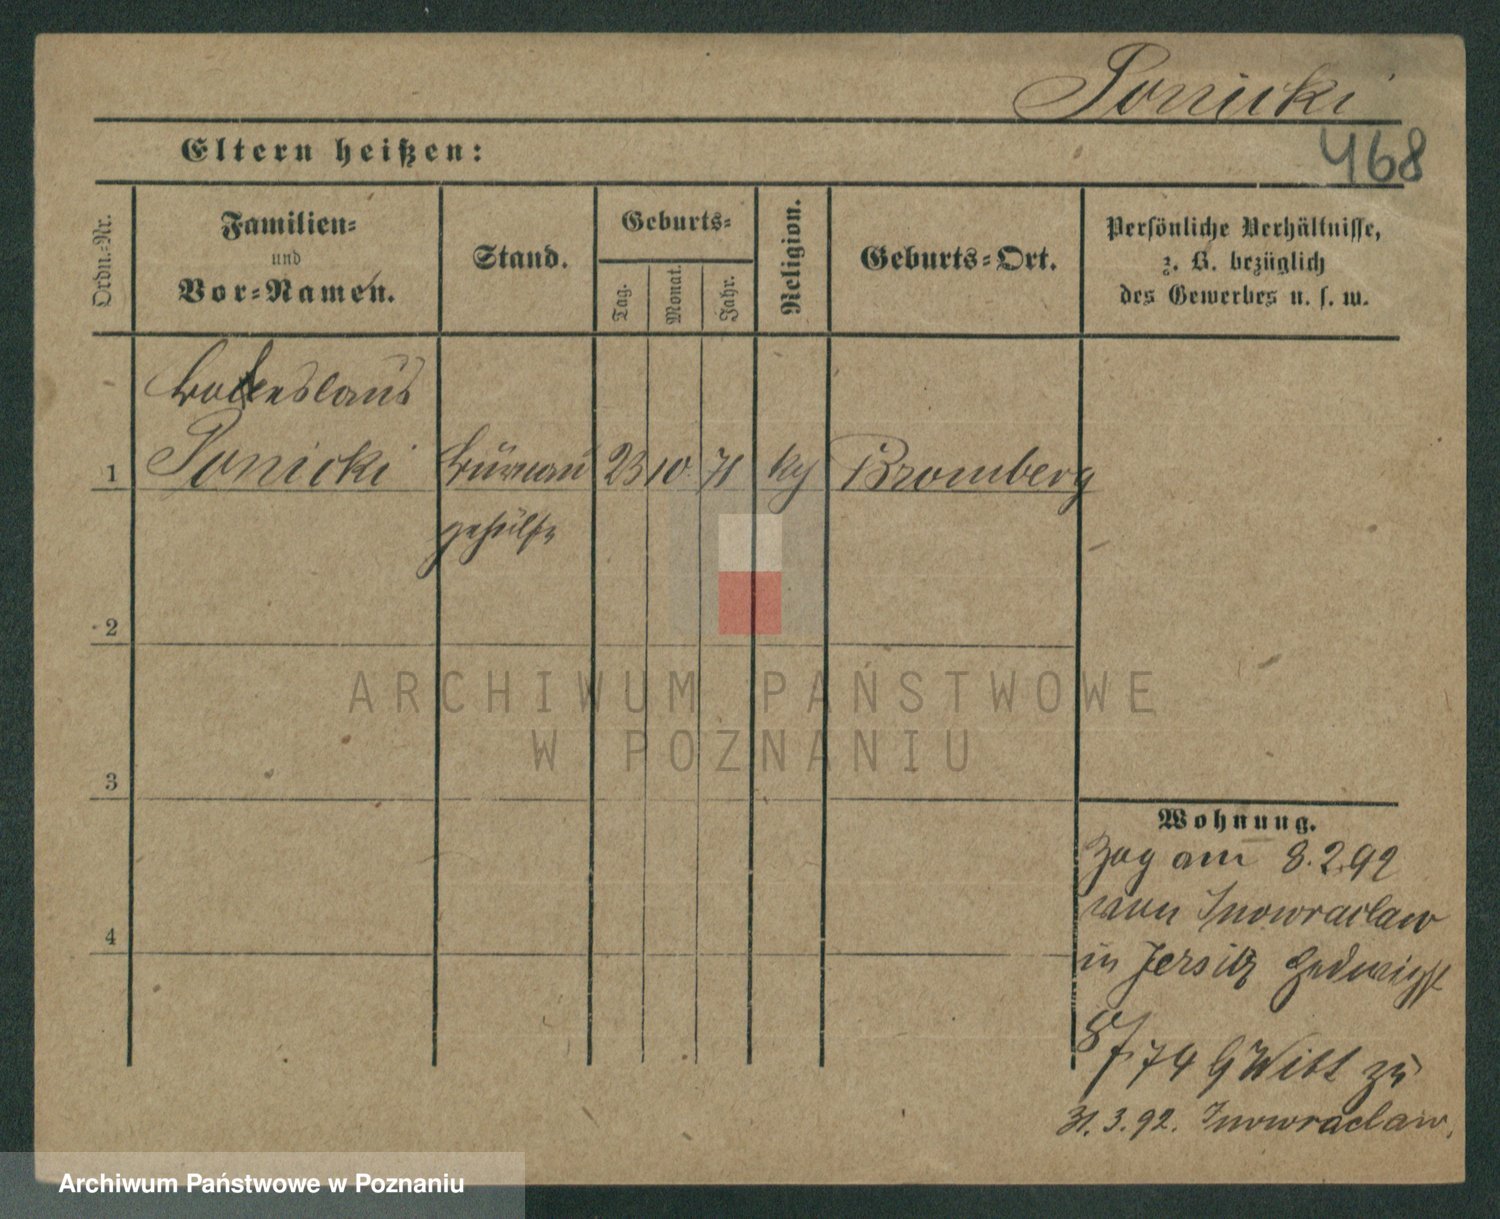 Ponicki
468
Eltern heißen:
Ordn.-Nr.
Familien-
und
Vor-Namen.
Stand.
Geburts-
Tag.
Monat.
Jahr.
Religion.
Geburts-Ort.
Persönliche Verhältnisse,
z. B. bezüglich
des Gewerbes u. s. w.
Boleslaus
1 Ponicki Büreau 23 10. 71 kg Bromberg
gehülfe
2
ARCHIWUM PAŃSTWOWE
W POZNANIU
3
Wohnung.
Zog am 8.2.92
von Inowraclaw
in Jersitz Hedwigst
4
74 Witt zu
31.3.92. Inowraclaw.
Archiwum Państwowe w Poznaniu